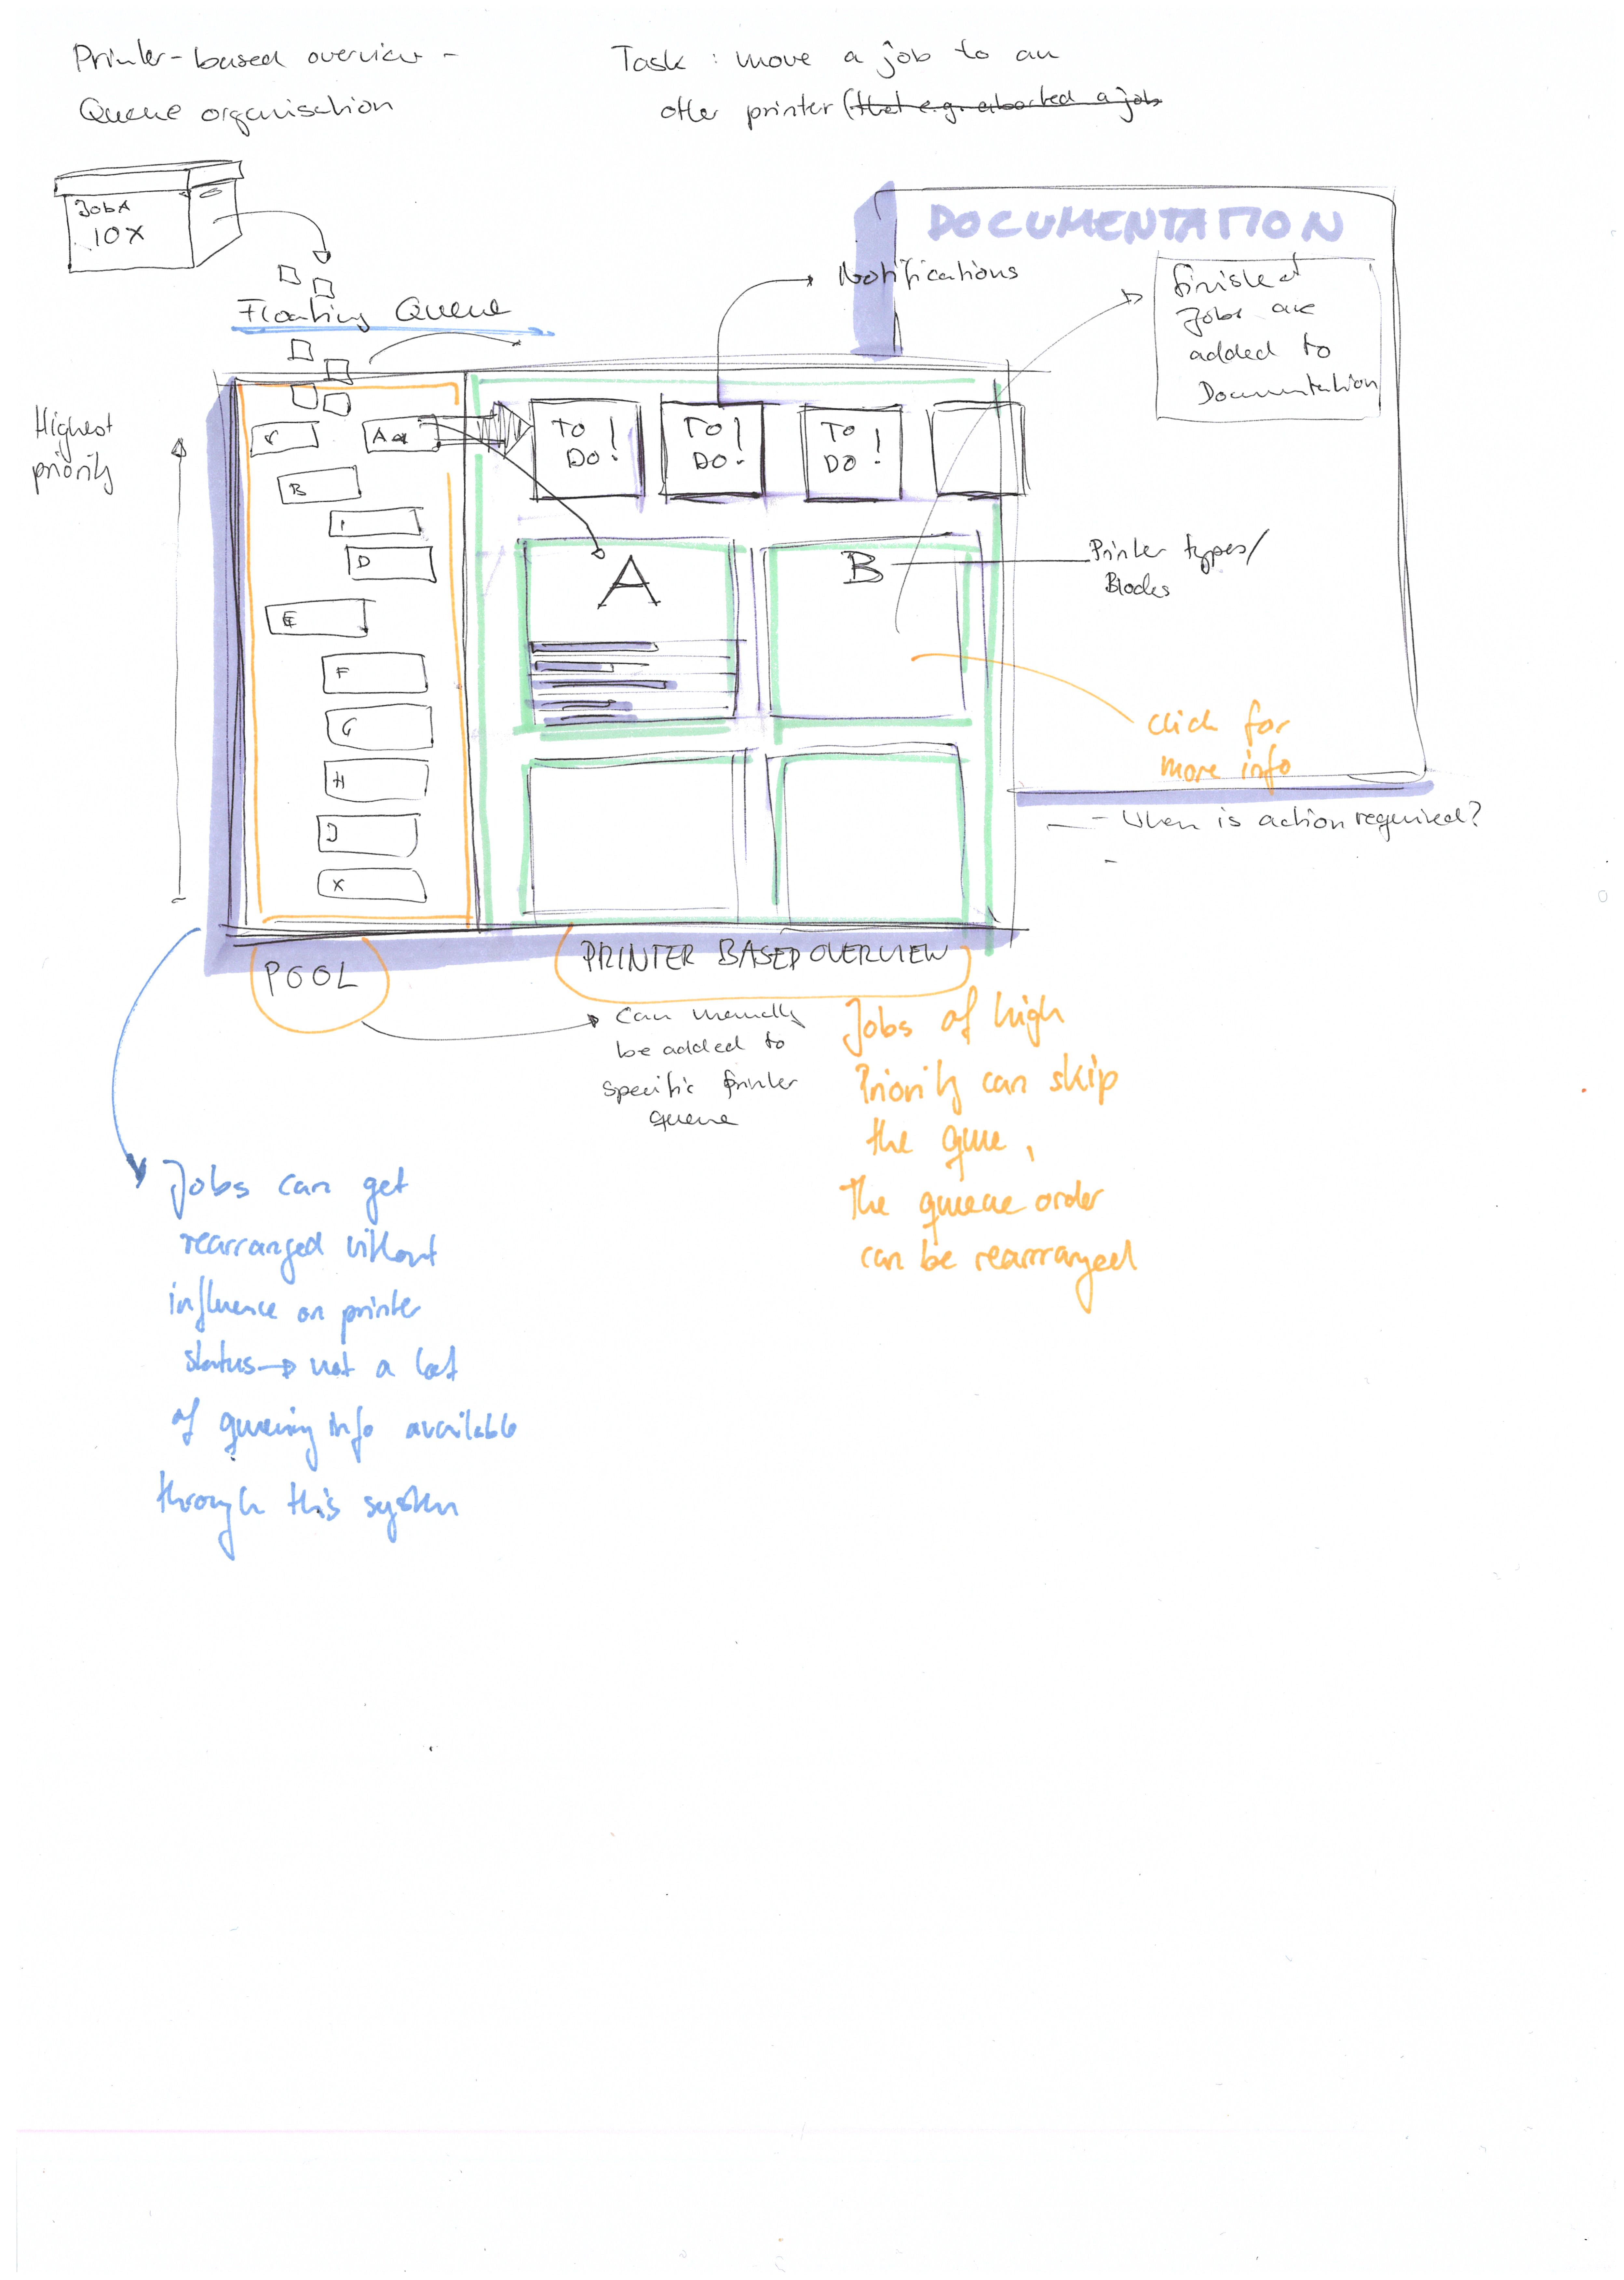 Printer-based overview -
Queue organisation
Task : move a job to an
other printer (that e.g. aborted a job
Job A
10X
Floating Queue
Notifications
DOCUMENTATION
finished
Jobs are
added to
Documentation
Highest
priority
A
B
I
D
E
F
G
H
J
X
TO
DO!
TO
DO!
TO
DO!
A
B
Printer types/
Blocks
click for
more info
- When is action required?
-
POOL
PRINTER BASED OVERVIEW
Can manually
be added to
specific printer
queue
Jobs of high
Priority can skip
the que,
The queue order
can be rearranged
Jobs can get
rearranged without
influence on printer
status → not a lot
of queuing info available
through this system